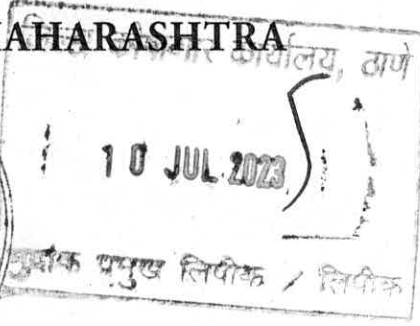 MAHARASHTRA
कार्यालय, ठाणे
10 JUL 2023
मुद्रांक प्रमुख लिपीक / लिपीक